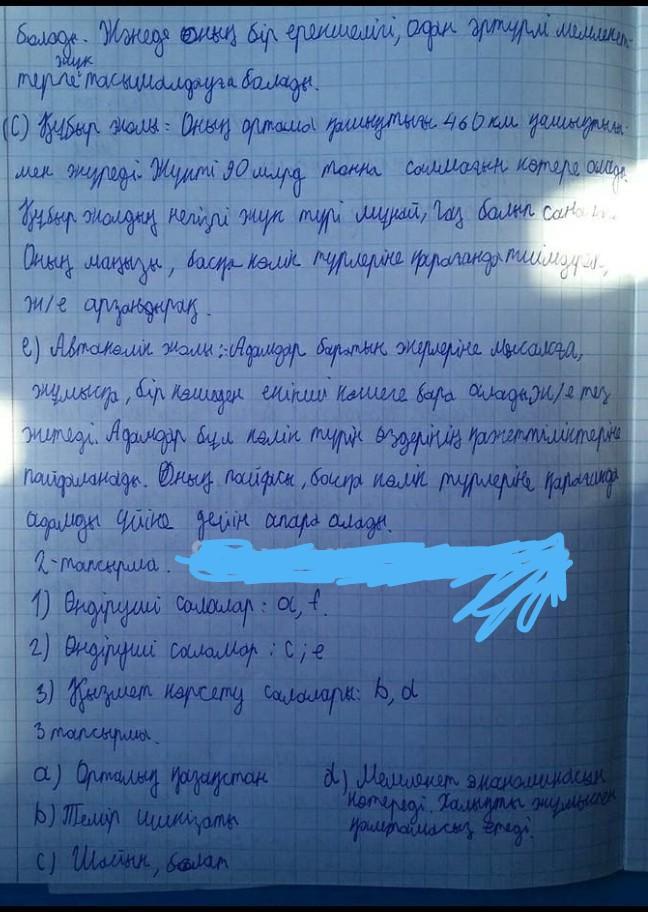 болады. Және де оның бір ерекшелігі, одан әртүрлі мемлекет-
терге жүк тасымалдауға болады.
(С) Құбыр жолы: Оның орташа қашықтығы 460 км қашықтығы-
мен жүреді. Жүкті 90 млрд тонна салмағын көтере алады.
Құбыр жолдың негізгі жүк түрі мұнай, газ болып сана
Оның маңызы, басқа көлік түрлеріне қарағанда тиімдірек,
ж/е арзандырақ.
е) Автакөлік жолы: Адамдар баратын жерлеріне мысалға,
жұмысқа, бір көшеден екінші көшеге бара алады ж/е тез
жетеді. Адамдар бұл көлік түрін өздерінің қажеттіліктеріне
пайдаланады. Оның пайдасы, басқа көлік түрлеріне қарағанда
адамды үйіне дейін апара алады.
2-тапсырма.
1) Өндіруші салалар: a, f.
2) Өндіруші салалар: c; e
3) Қызмет көрсету салалары: b, d
3 тапсырма.
a) Орталық қазақстан
b) Темір шикізаты
c) Шойын, болат
d) Мемлекет экономикасын
көтереді. Халықты жұмыспен
қамтамасыз етеді.